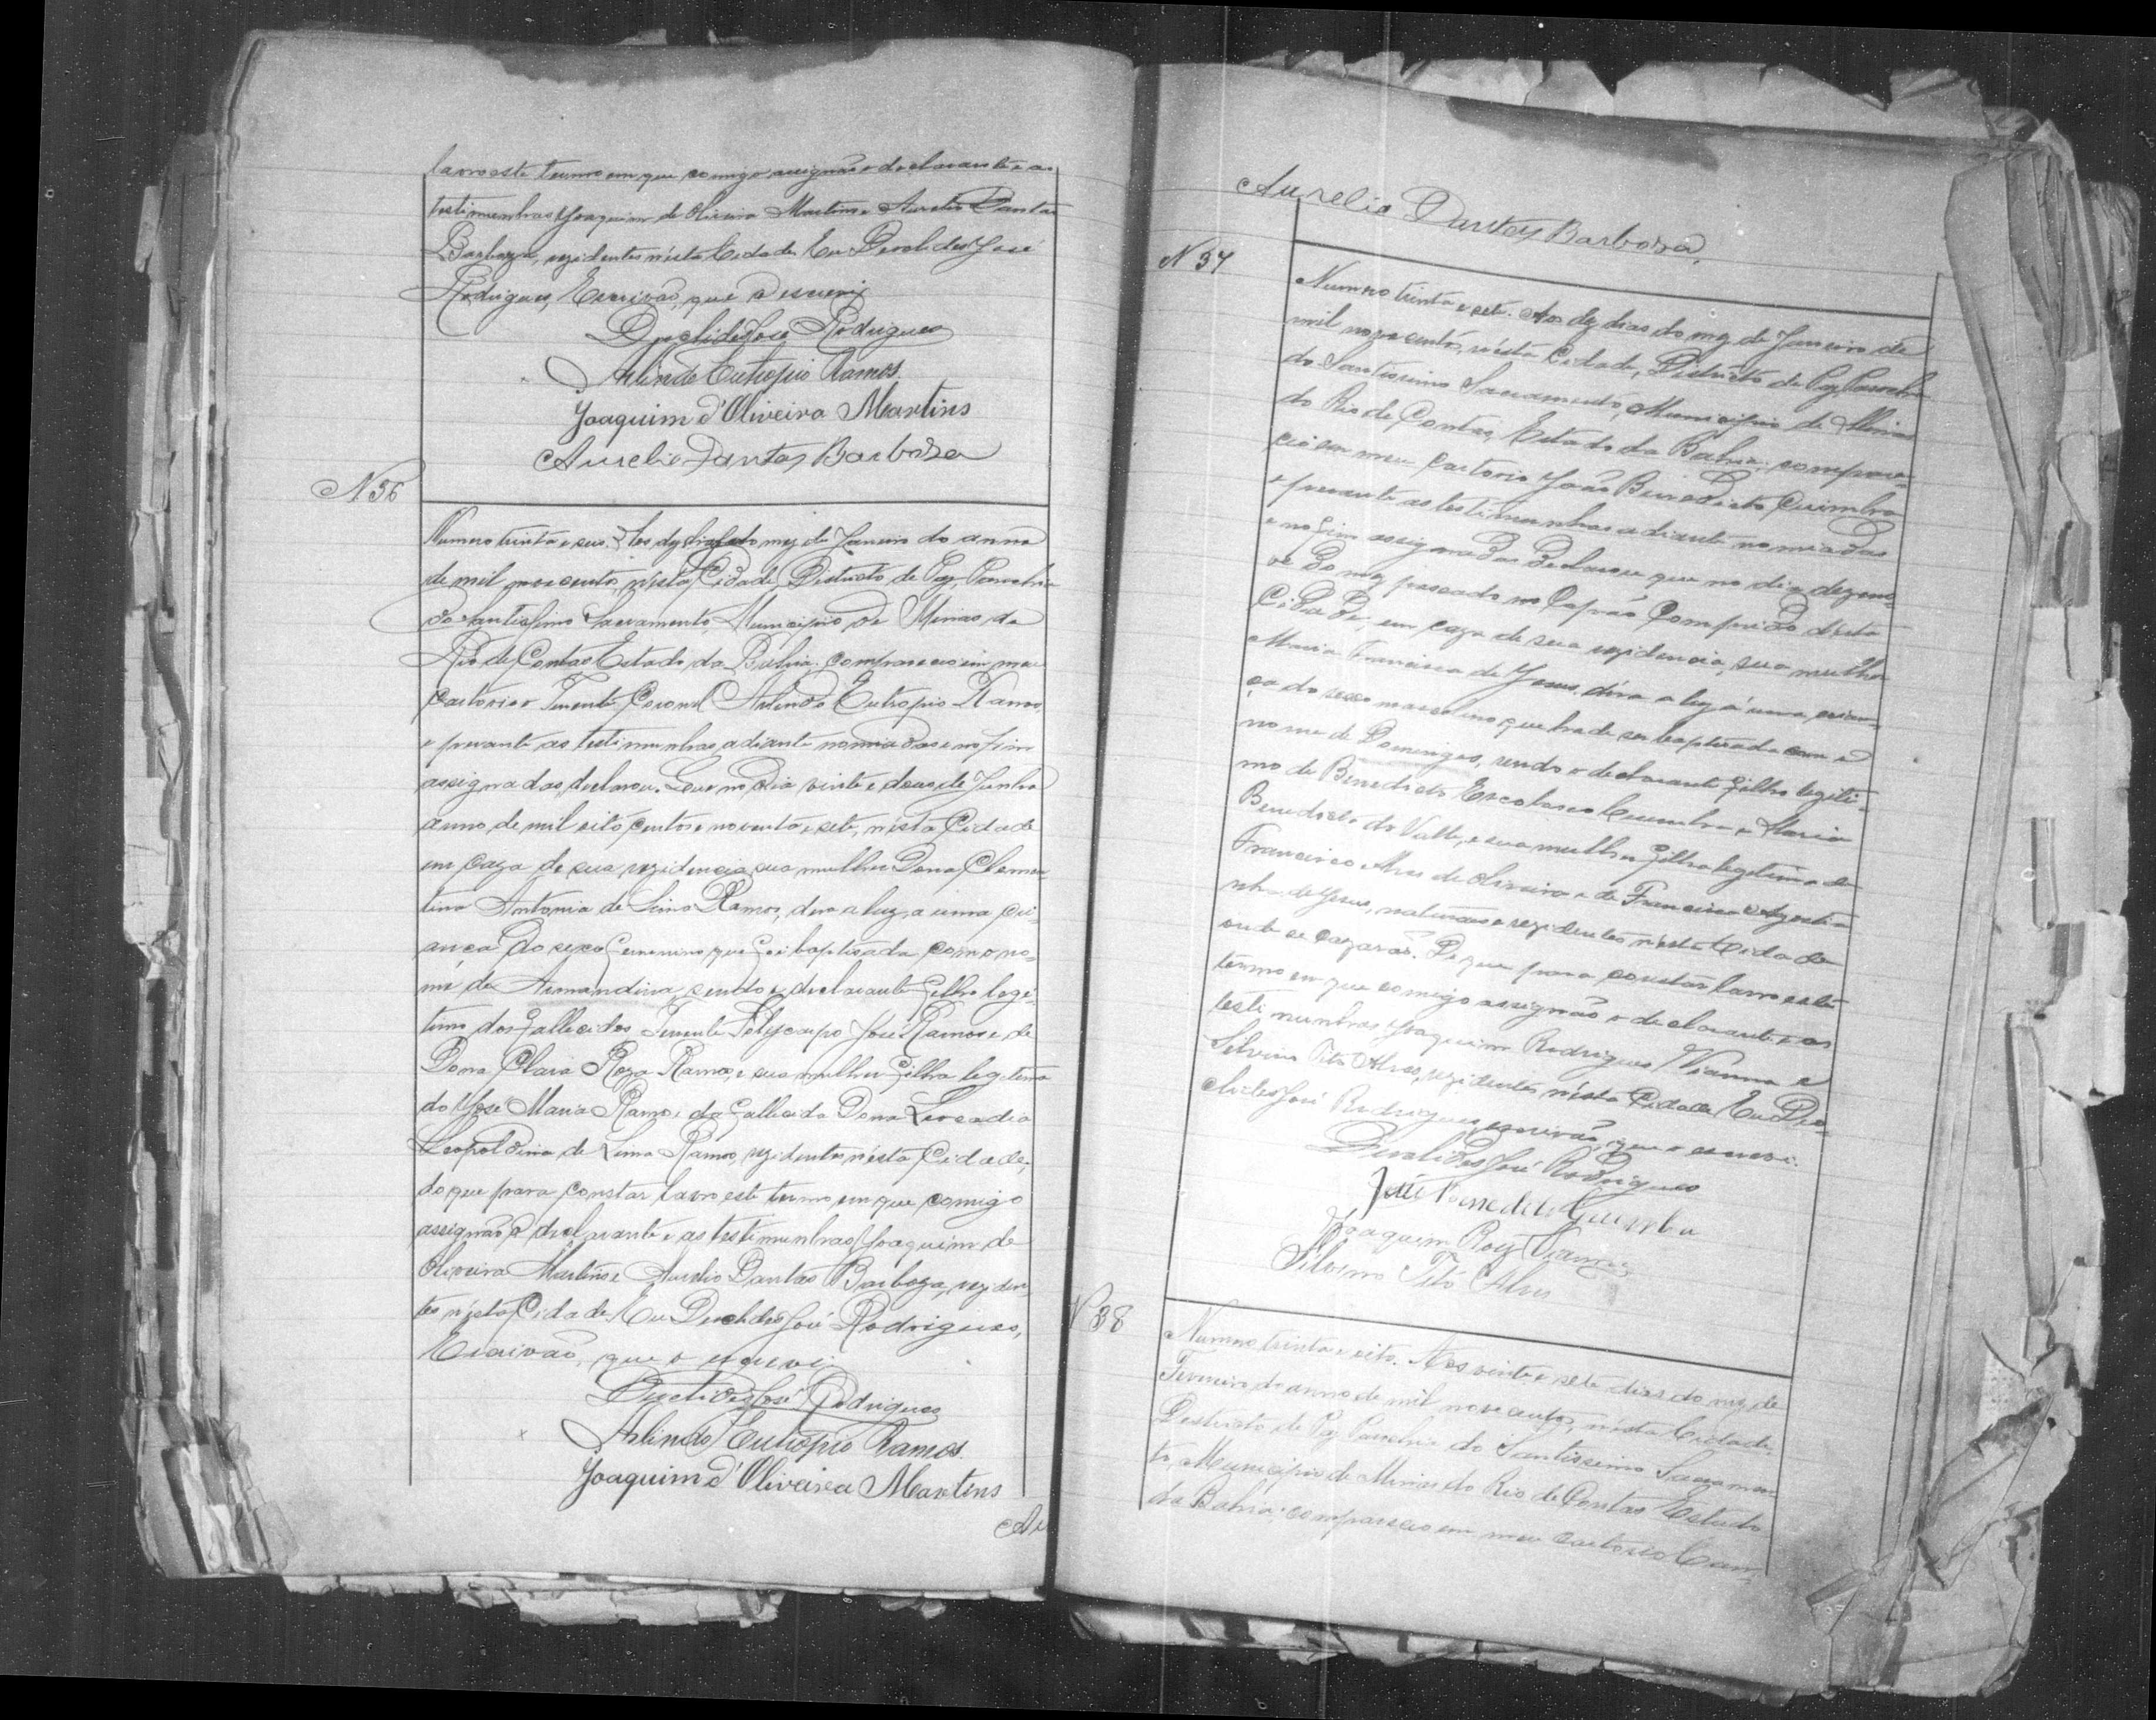 lavro este termo em que comigo assignão o declarante e as
testimunhas Joaquim de Oliveira Martins e Aurelio Dantas
Barboza, rezidentes nésta Cidade. Eu Diocl​ides José
Rodrigues, Escrivão, que o escrevi
Dioclides José Rodrigues
Arlindo Eutropio Ramos.
Joaquim d'Oliveira Martins
Aurelio Dantas Barboza
N 36
Numero trinta e seis. Aos dez dias do mez de Janeiro do anno
de mil novecentos, nésta Cidade, Districto de Paz, Parochia
do Santissimo Sacramento, Municipio de Minas do
Rio de Contas Estado da Bahia: compareceo em meu
cartorio o Tenente Coronel Arlindo Eutropio Ramos,
e perante as testimunhas adiante nomiadas e no fim
assignadas, declarou. Que no dia vinte e dous de Junho
anno de mil oito centos e noventa e sete, nésta Cidade
em caza de sua rezidencia, sua mulher Dona Clemen-
tina Antonia de Lima Ramos, deu a luz, a uma cri-
ança do sexo femenino que foi baptisada com o no-
me de Armandina, sendo o declarante filho legi-
timo dos fallecidos Tenente Polycarpo José Ramos e de
Dona Clara Roza Ramos, e sua mulher filha legitima
do José Maria Ramos e da fallecida Dona Leocadia
Leopoldina de Lima Ramos, rezidentes nésta Cidade.
do que para constar lavro este termo em que comigo
assignão o declarante e as testimunhas Joaquim de
Oliveira Martins e Aurelio Dantas Barboza, reziden-
tes nésta Cidade. Eu Dioclides José Rodrigues,
Escrivão, que o escrevi
Dioclides José Rodrigues
Arlindo Eutropio Ramos.
Joaquim d'Oliveira Martins
Au
Aurelio Dantas Barboza.
N 37
Numero trinta e sete. Aos dez dias do mez de Janeiro de
mil novecentos, nésta Cidade, Districto de Paz, Parochia
do Santissimo Sacramento, Municipio de Minas
do Rio de Contas, Estado da Bahia: compare-
ceo em meu cartorio João Benedicto Cuimba
e perante as testimunhas adiante nomiadas
e no fim assignadas declarou que no dia dezeno-
ve do mez passado no Capão Comprido désta
Cidade, em caza de sua rezidencia, sua mulher
Maria Francisca de Jesus, déra a luz á uma crian-
ça do sexo masculino que ha de ser baptisada com o
nome de Domingos, sendo o declarante filho legiti-
mo de Benedicto Cuimba e Maria
Benedicta do Valle, e sua mulher filha legitima de
Francisco Alves de Oliveira e de Francisca Agosti-
nha de Jesus, naturaes e rezidentes nésta Cidade
onde se cazarão. Do que para constar lavro este
termo em que comigo assignão o declarante e as
testimunhas Joaquim Rodrigues Vianna e
Silvino Tito Alves, rezidentes nésta Cidade. Eu Dio-
clides José Rodrigues, escrivão, que o escrevi.
Dioclides José Rodrigues
João Benedicto Cuimba
Joaquim Roiz Vianna
Silvino Tito Alves
N 38
Numero trinta e oito. Aos vinte e sete dias do mez de
Fevereiro do anno de mil novecentos, nésta Cidade
Districto de Paz, Parochia do Santissimo Sacramen-
to, Municipio de Minas do Rio de Contas Estado
da Bahia: compareceo em meu cartorio